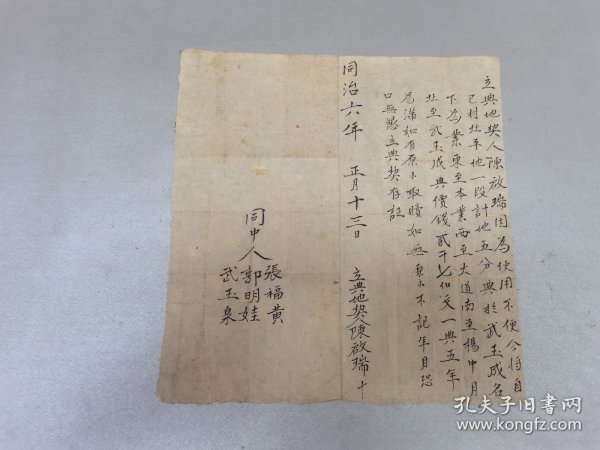 立典地契人陳啟瑞因為使用不便今將自
己村北平地一段計地五分典於武玉成名
下為業東至本業西至大道南至楊中月
北至武玉成典價錢貳千七佰文一典五年
為滿如有原不取贖如無原不不記年月恐
口無憑立典契存証
同治六年 正月十三日 立典地契人陳啟瑞十
同中人
張福黃
郭明娃
武玉泉
孔夫子旧书网
www.kongfz.com